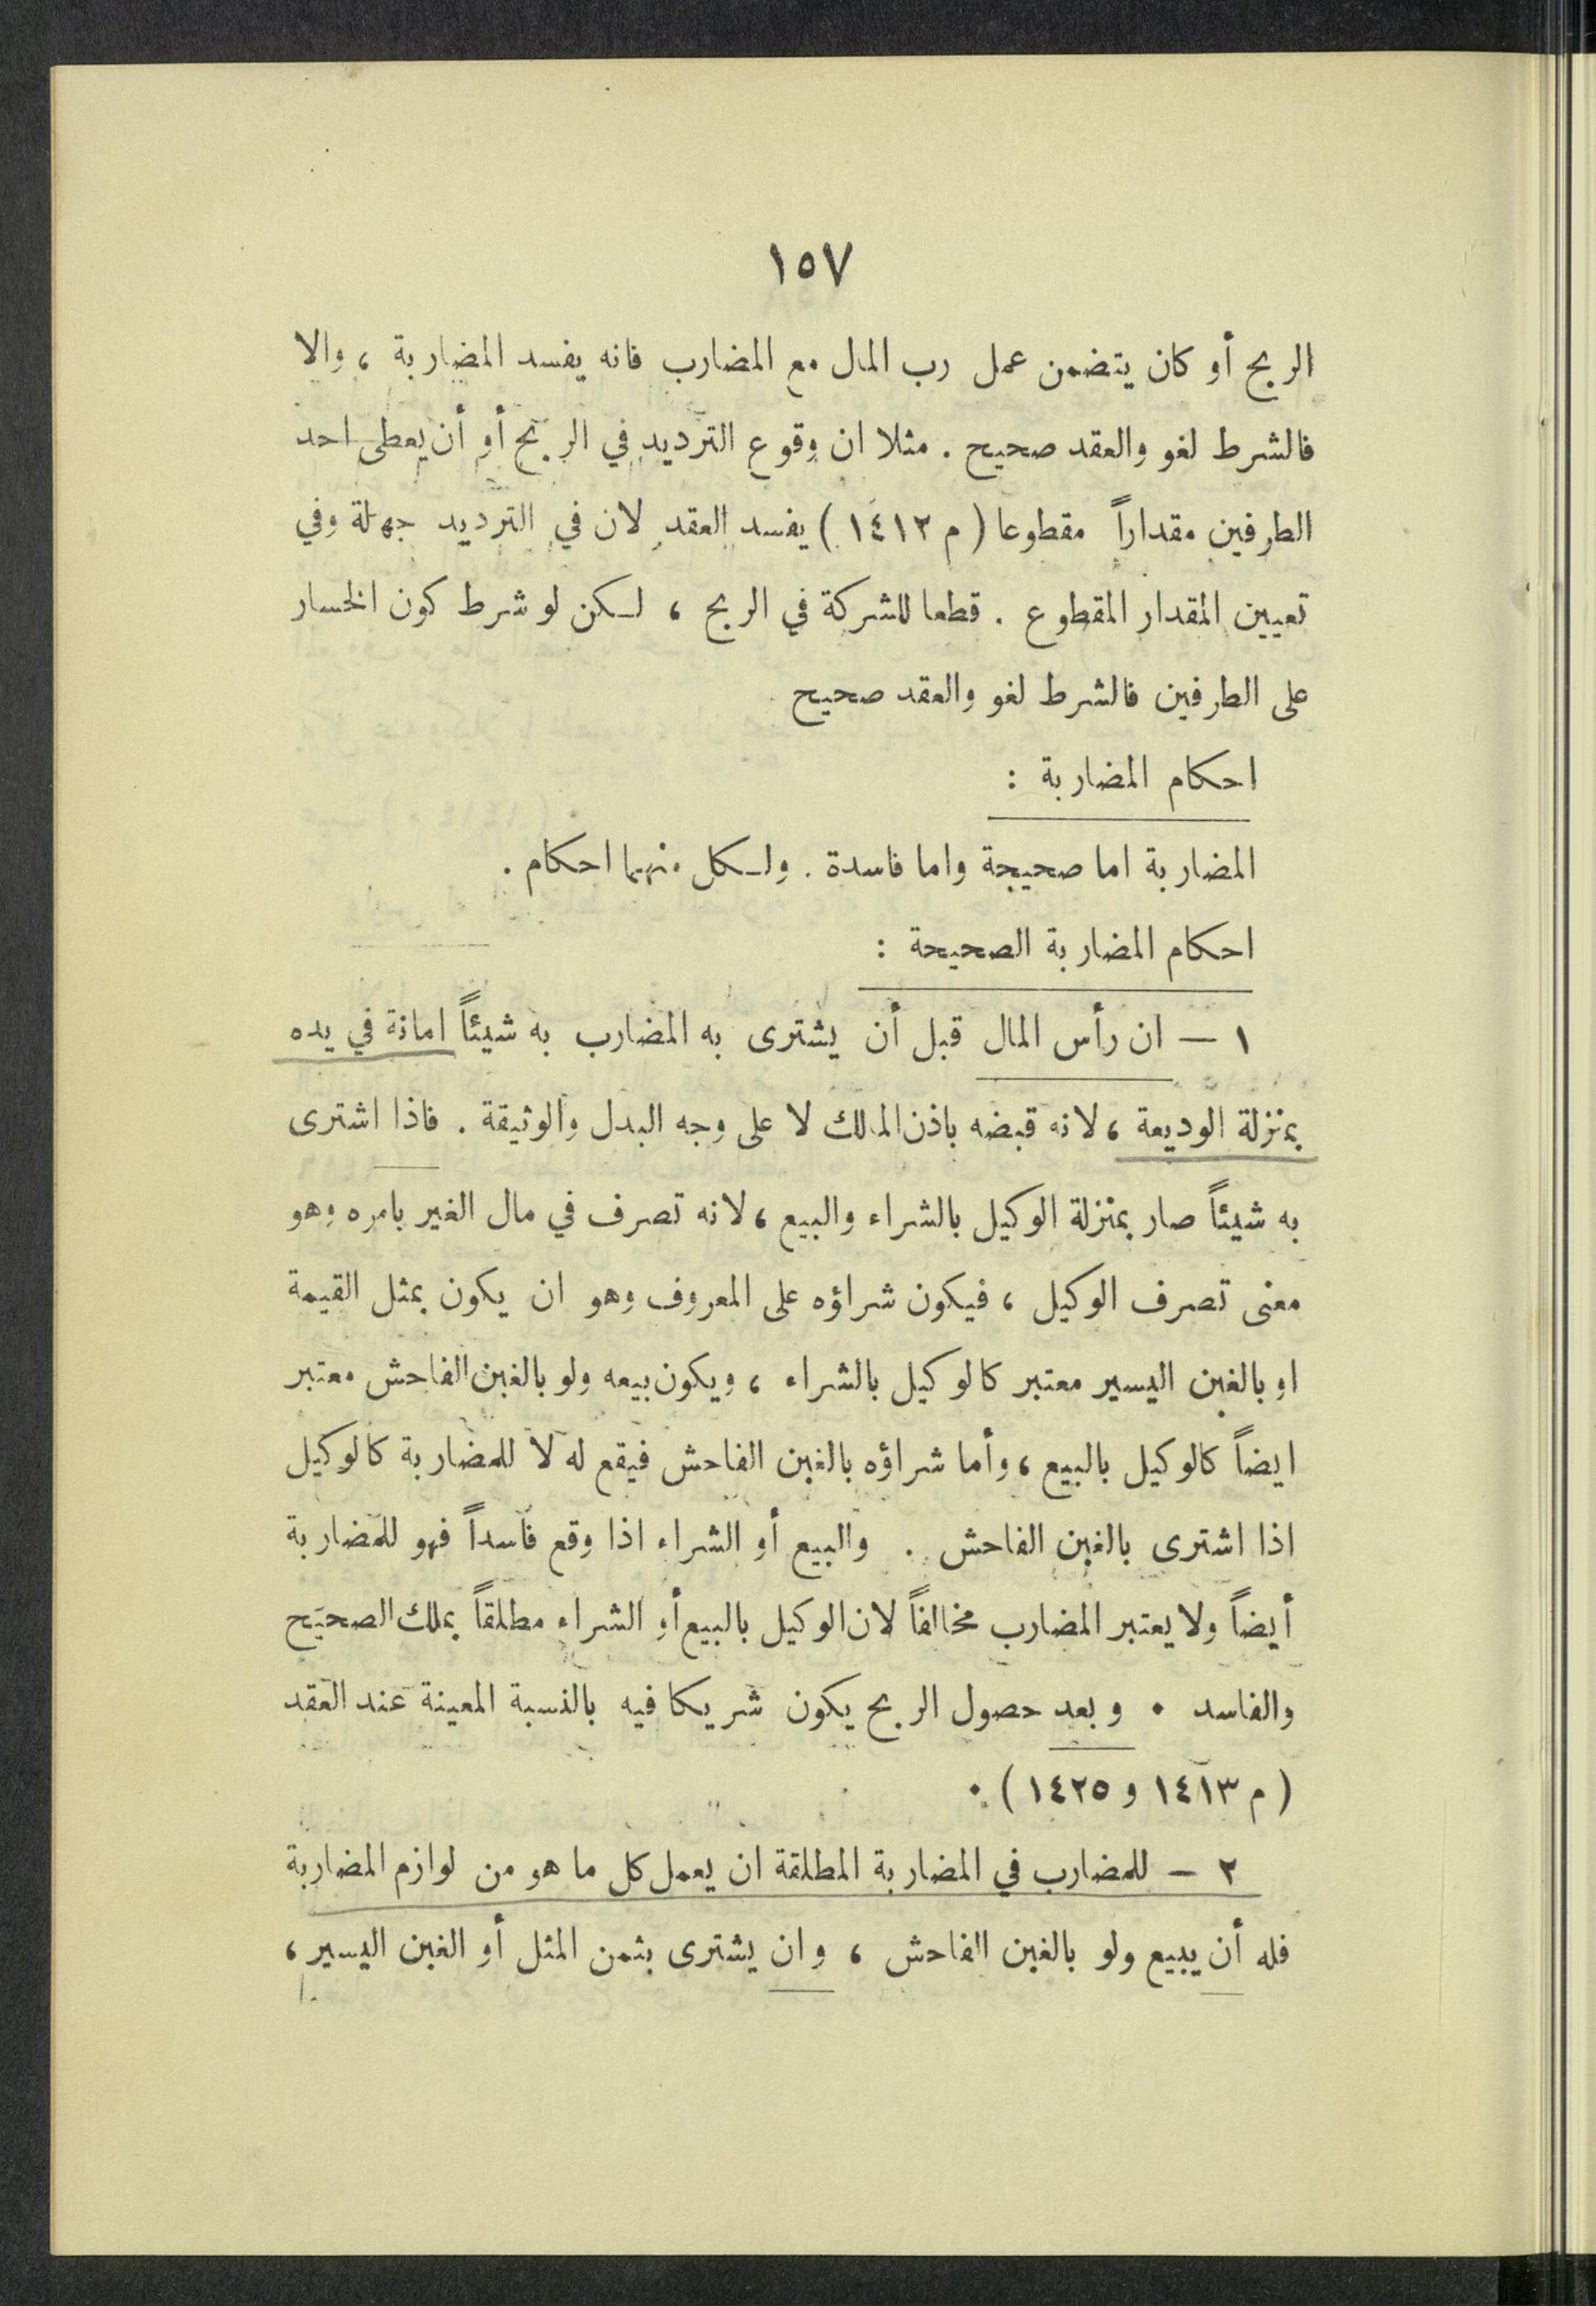 ١٥٧
الربح أو كان يتضمن عمل رب المال مع المضارب فانه يفسد المضاربة ، والا
فالشرط لغو والعقد صحيح . مثلا ان وقوع الترديد في الربح أو أن يعطى احد
الطرفين مقداراً مقطوعا ( م ١٤١٢ ) يفسد العقد لان في الترديد جهلة وفي
تعيين المقدار المقطوع . قطعا للشركة في الربح ، لكن لو شرط كون الخسار
على الطرفين فالشرط لغو والعقد صحيح
احكام المضاربة :
المضاربة اما صحيحة واما فاسدة . ولكل منهما احكام .
احكام المضاربة الصحيحة :
١ — ان رأس المال قبل أن يشترى به المضارب به شيئاً امانة في يده
بمنزلة الوديعة ، لانه قبضه باذن المالك لا على وجه البدل والوثيقة . فاذا اشترى
به شيئاً صار بمنزلة الوكيل بالشراء والبيع ، لانه تصرف في مال الغير بامره وهو
معنى تصرف الوكيل ، فيكون شراؤه على المعروف وهو ان يكون بمثل القيمة
او بالغبن اليسير معتبر كالوكيل بالشراء ، ويكون بيعه ولو بالغبن الفاحش معتبر
ايضاً كالوكيل بالبيع ، وأما شراؤه بالغبن الفاحش فيقع له لا للمضاربة كالوكيل
اذا اشترى بالغبن الفاحش . والبيع أو الشراء اذا وقع فاسداً فهو للمضاربة
أيضاً ولا يعتبر المضارب مخالفاً لان الوكيل بالبيع أو الشراء مطلقاً يملك الصحيح
والفاسد . وبعد حصول الربح يكون شريكا فيه بالنسبة المعينة عند العقد
( م ١٤١٣ و ١٤٢٥ ) .
٢ — للمضارب في المضاربة المطلقة ان يعمل كل ما هو من لوازم المضاربة
فله أن يبيع ولو بالغبن الفاحش ، وان يشترى بثمن المثل أو الغبن اليسير ،